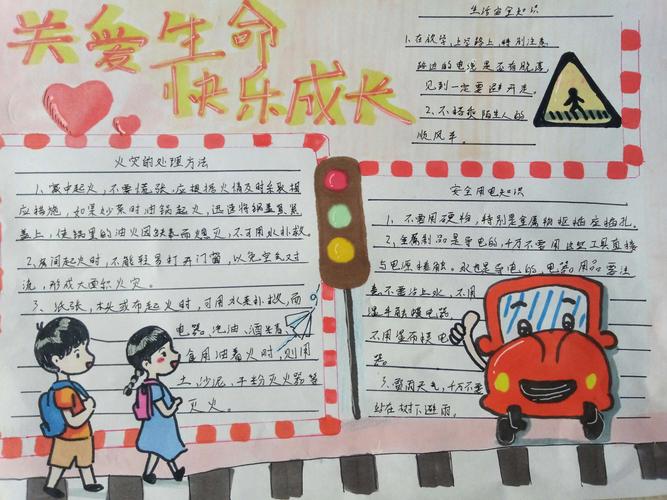 关爱生命
快乐成长
生活安全知识
1.在放学、上学路上，特别注意
路边的电线是否有脱落，
见到一定要避开走。
2、不搭乘陌生人的
顺风车。
火灾的处理方法
1、家中起火，不要慌张，应根据火情及时采取相
应措施，如果炒菜时油锅起火，迅速将锅盖紧紧
盖上，使锅里的油火因缺氧而熄灭，不可用水扑救。
2、房间起火时，不能轻易打开门窗，以免空气对
流，形成大面积火灾。
3、纸张，木头或布起火时，可用水来扑救，而
电器、汽油、酒
食用油着火时，则用
土、沙泥、干粉灭火器等
灭火。
安全用电知识
1、不要用硬物，特别是金属物抠插座插孔。
2、金属制品是导电的，千万不要用这些工具直接
与电源接触。水也是导电的，电器用品要注
意不要沾上水，不用
湿手触摸电器，
不用湿布擦电
器。
3、雷雨天气，千万不要
站在树下避雨，